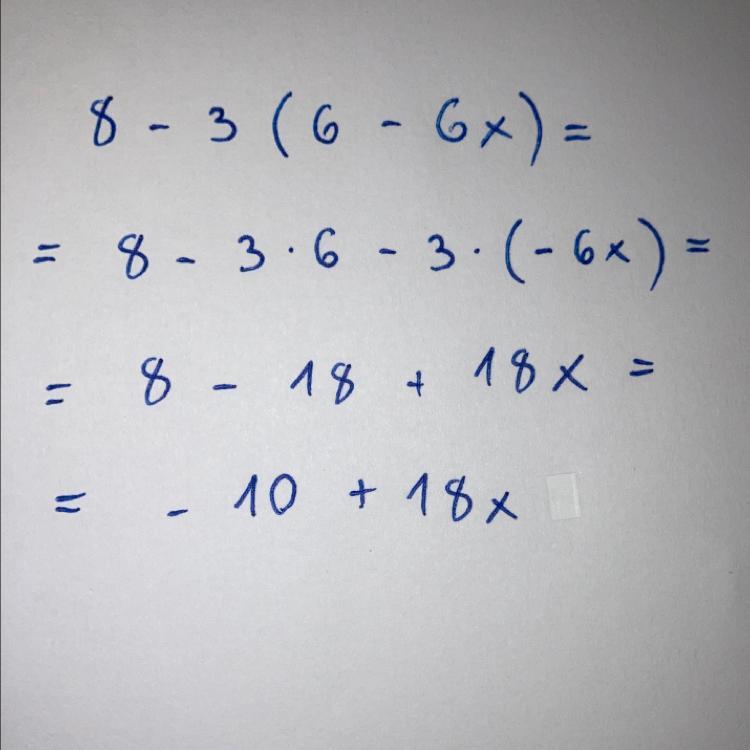 8 - 3 (6 - 6x) =
= 8 - 3 · 6 - 3 · (- 6x) =
= 8 - 18 + 18x =
= - 10 + 18x